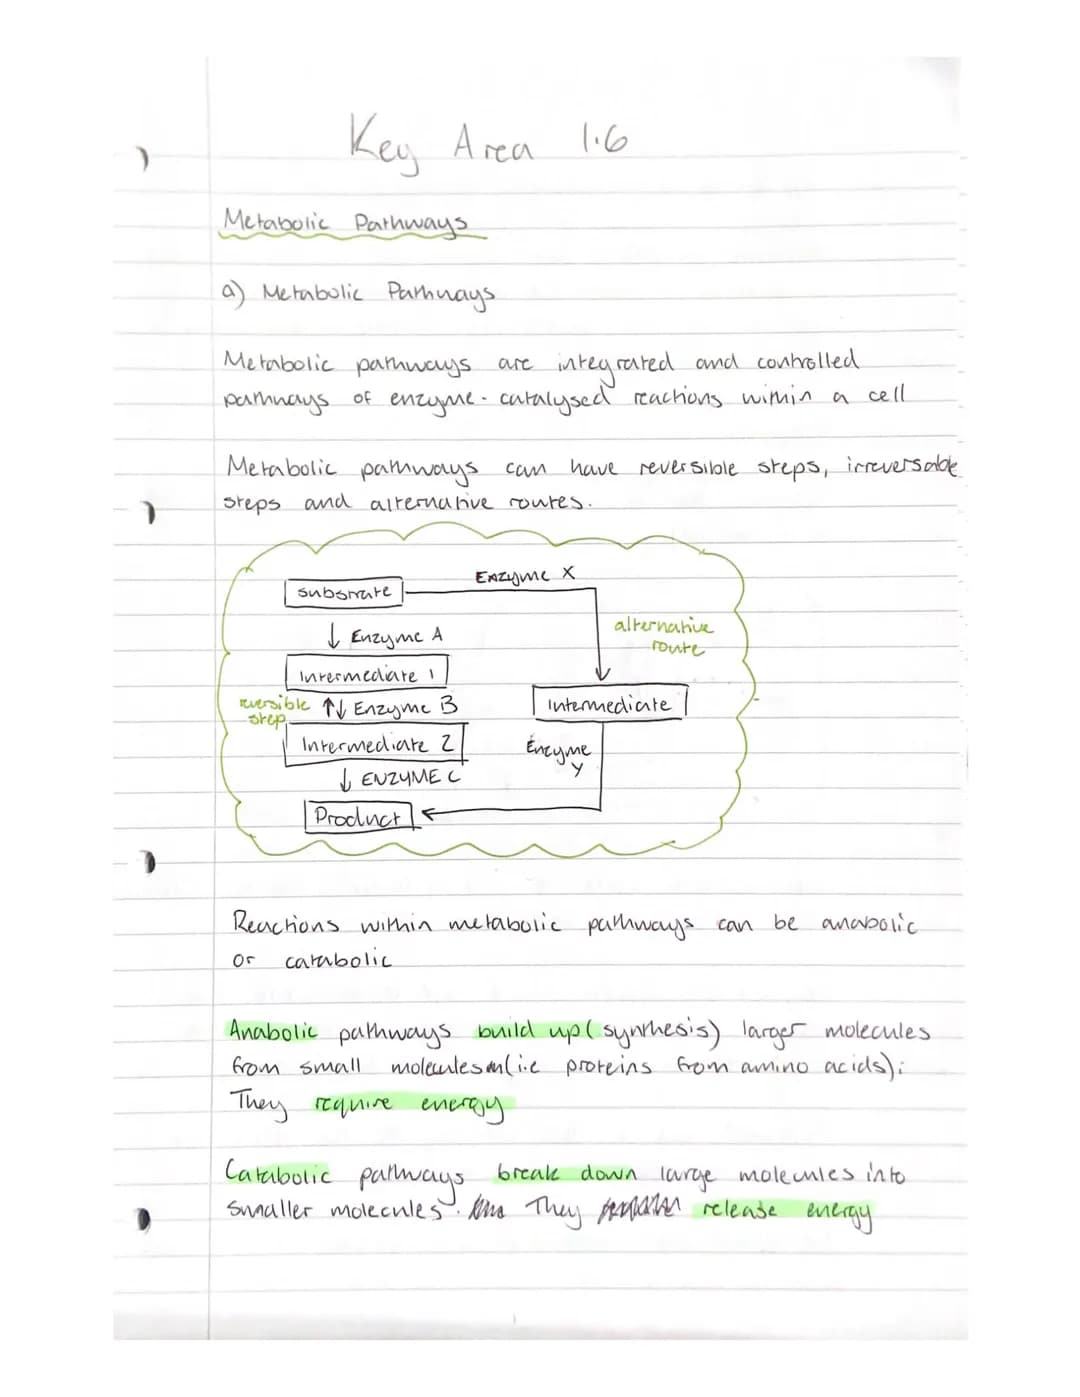 Key Area 1.6
Metabolic Pathways
a) Metabolic Pathways
Metabolic pathways are integrated and controlled
pathways of enzyme-catalysed reactions within a cell
Metabolic pathways can have reversible steps, irreversable
steps and alternative routes.
Enzyme X
Substrate
alternative
route
↓ Enzyme A
Intermediate 1
reversible
step
↑↓ Enzyme B
Intermediate
Intermediate 2
Enzyme
Y
↓ ENZYME C
Product
Reactions within metabolic pathways can be anabolic
or catabolic
Anabolic pathways build up (synthesis) larger molecules
from small molecules (i.e proteins from amino acids);
They require energy
Catabolic pathways break down large molecules into
smaller molecules. They release energy